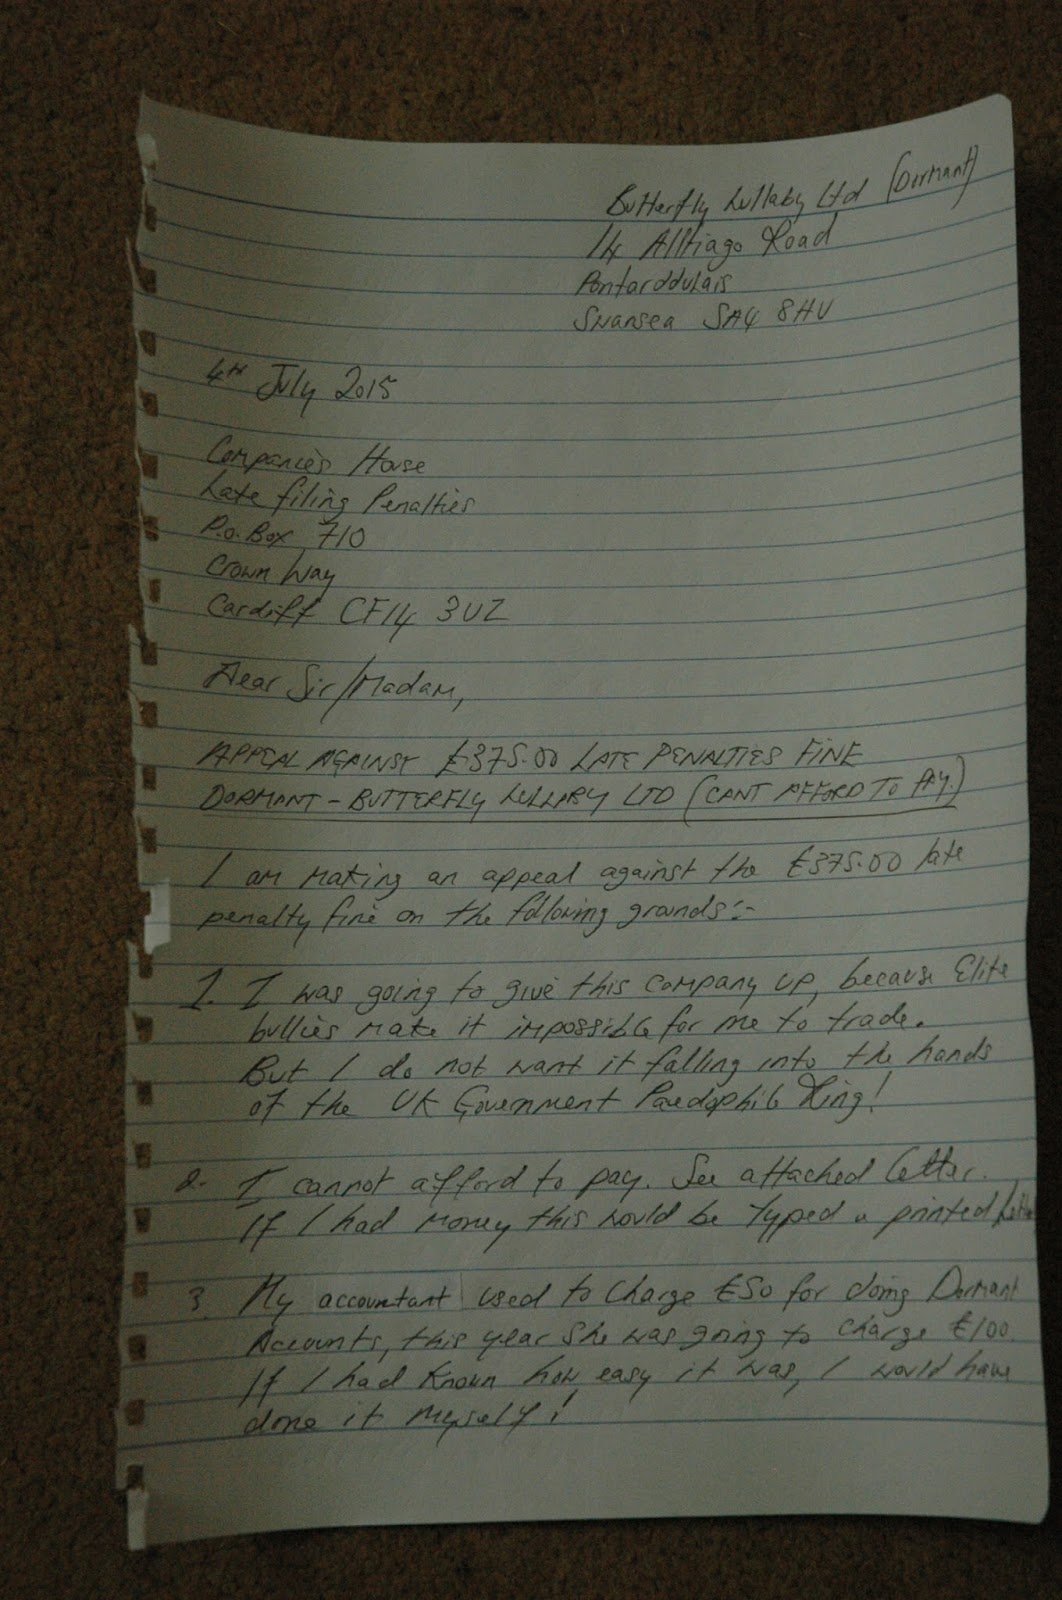 Butterfly Lullaby Ltd (Dormant)
14 Alltiago Road
Pontarddulais
Swansea SA4 8HU
4th July 2015
Companies House
Late filing Penalties
P.O. Box 710
Crown Way
Cardiff CF14 3UZ
Dear Sir/Madam,
APPEAL AGAINST £375.00 LATE PENALTIES FINE
DORMANT - BUTTERFLY LULLABY LTD (CANT AFFORD TO PAY.)
I am making an appeal against the £375.00 late
penalty fine on the following grounds:-
1. I was going to give this company up, because Elite
bullies make it impossible for me to trade.
But I do not want it falling into the hands
of the UK Government Paedophile Ring!
2. I cannot afford to pay. See attached letter.
If I had money this would be typed a printed
3. My accountant used to charge £50 for doing Dormant
Accounts, this year she was going to charge £100.
If I had known how easy it was, I would have
done it myself!